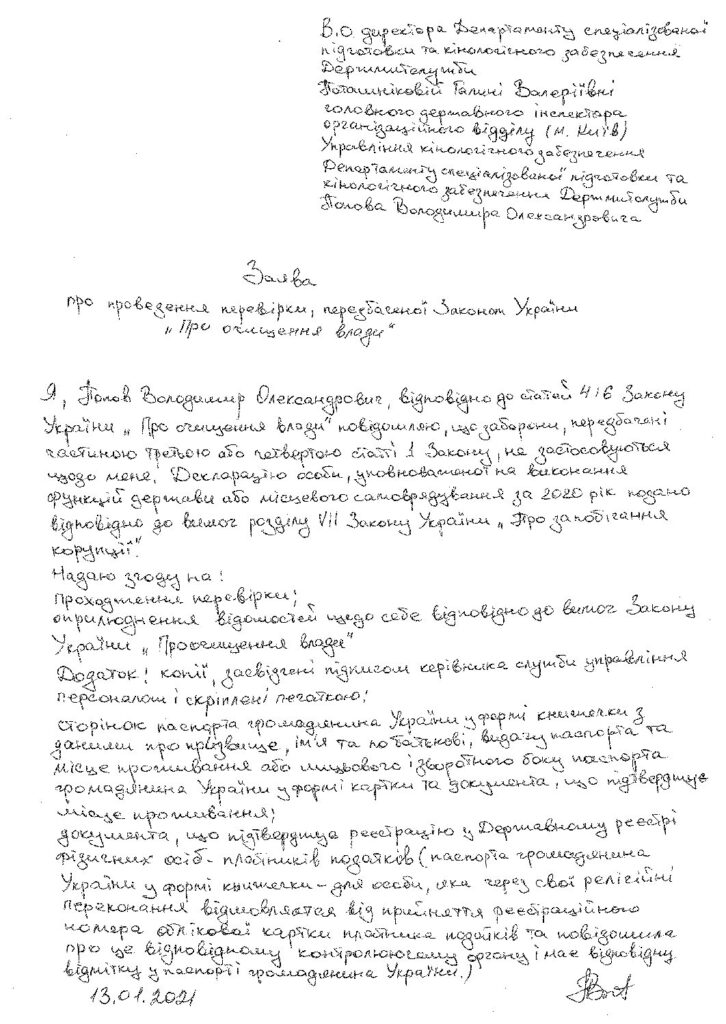 В.О. директора Департаменту спеціалізованої
підготовки та кінологічного забезпечення
Держмитслужби
Поташніковій Галині Валеріївні
головного державного інспектора
організаційного відділу (м. Київ)
Управління кінологічного забезпечення
Департаменту спеціалізованої підготовки та
кінологічного забезпечення Держмитслужби
Попова Володимира Олександровича
Заява
про проведення перевірки, передбаченої Законом України
„Про очищення влади"
Я, Попов Володимир Олександрович, відповідно до статей 4 і 6 Закону
України „Про очищення влади" повідомляю, що заборони, передбачені
частиною третьою або четвертою статті 1 Закону, не застосовуються
щодо мене. Декларацію особи, уповноваженої на виконання
функцій держави або місцевого самоврядування за 2020 рік подано
відповідно до вимог розділу VII Закону України „Про запобігання
корупції".
Надаю згоду на:
проходження перевірки;
оприлюднення відомостей щодо себе відповідно до вимог Закону
України „Про очищення влади"
Додаток: копії, засвідчені підписом керівника служби управління
персоналом і скріплені печаткою:
сторінок паспорта громадянина України у формі книжечки з
даними про прізвище, ім'я та по батькові, видачу паспорта та
місце проживання або лицьового і зворотного боку паспорта
громадянина України у формі картки та документа, що підтверджує
місце проживання;
документа, що підтверджує реєстрацію у Державному реєстрі
фізичних осіб - платників податків (паспорта громадянина
України у формі книжечки - для особи, яка через свої релігійні
переконання відмовляется від прийняття реєстраційного
номера облікової картки платника податків та повідомила
про це відповідному контролюючому органу і має відповідну
відмітку у паспорті громадянина України.)
13.01.2021